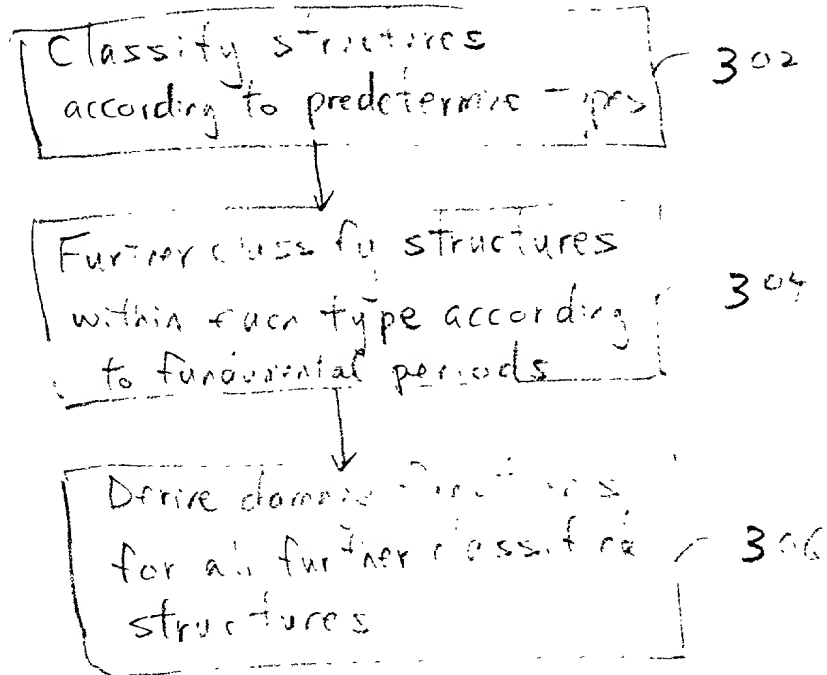 Classify structures
302
according to predetermine types
Further classify structures
within each type according
304
to fundamental periods
Derive damage functions
for all further classified
306
structures